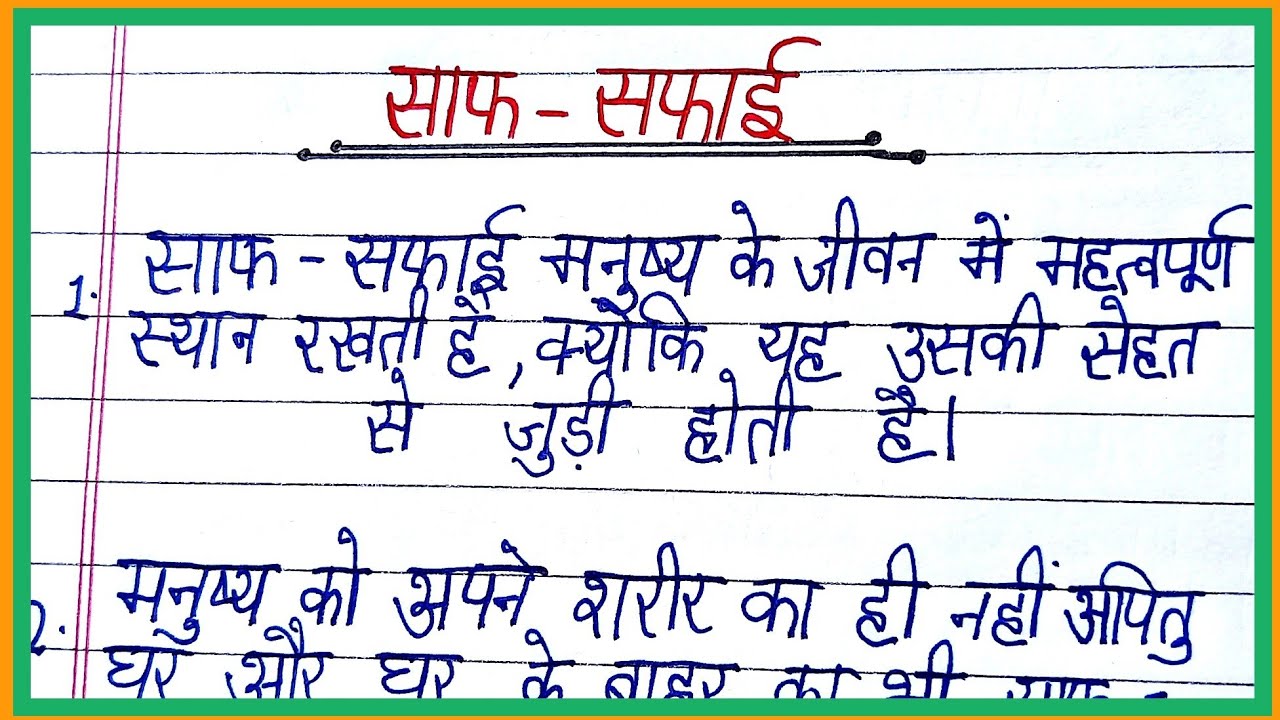 साफ - सफाई
1. साफ - सफाई मनुष्य के जीवन में महत्वपूर्ण
स्थान रखती है, क्योंकि यह उसकी सेहत
से जुड़ी होती है।
2. मनुष्य को अपने शरीर का ही नहीं अपितु
घर और घर के बाहर का भी साफ -